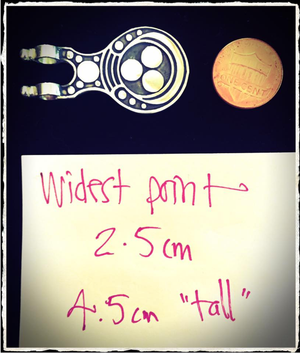 Widest point
2.5cm
4.5cm "tall"